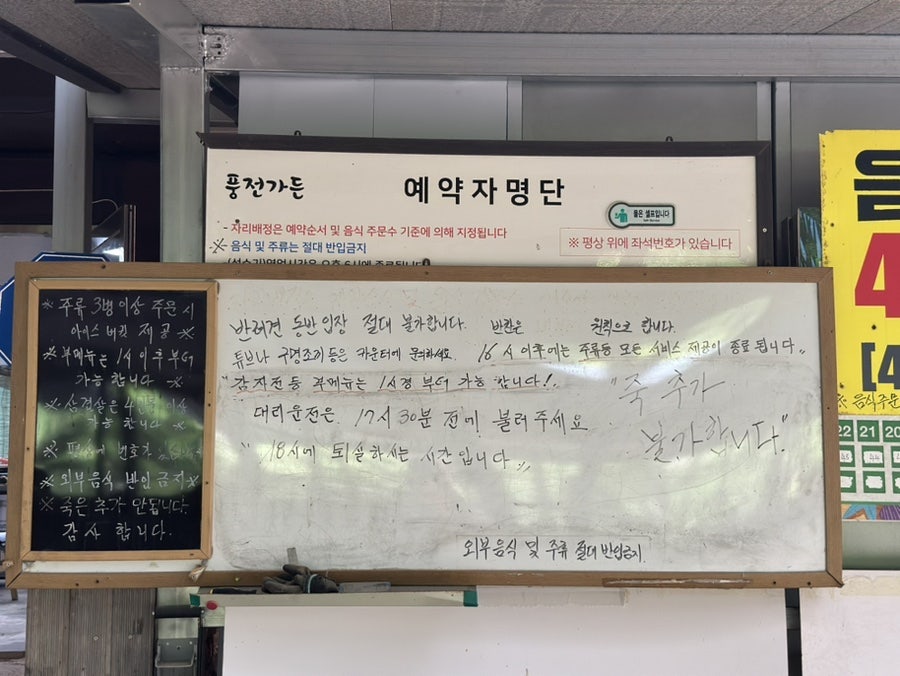 풍전가든
예약자명단
물은 셀프입니다
- 자리배정은 예약순서 및 음식 주문수 기준에 의해 지정됩니다
※ 음식 및 주류는 절대 반입금지
※ 평상 위에 좌석번호가 있습니다
※ 주류 3병 이상 주문 시
아이스 버킷 제공 ※
※ 부메뉴는 1시 이후 부터
가능 합니다 ※
※ 삼겹살은
가능 합니다 ※
※ 평상에 번호가
※ 외부음식 반입 금지 ※
※ 죽은 추가 안됩니다.
감사 합니다.
반려견 동반입장 절대 불가합니다. 반찬은 원칙으로 합니다.
튜브나 구명조끼 등은 카운터에 문의하세요. 16시 이후에는 주류등 모든 서비스 제공이 종료 됩니다"
"감자전 등 부메뉴는 1시경 부터 가능 합니다!.
"죽 추가
대리운전은 17시 30분 전에 불러주세요
불가합니다."
"18시에 퇴실하시는 시간입니다"
외부음식 및 주류 절대 반입금지
음
4
[4
※ 음식주문
22 21 20